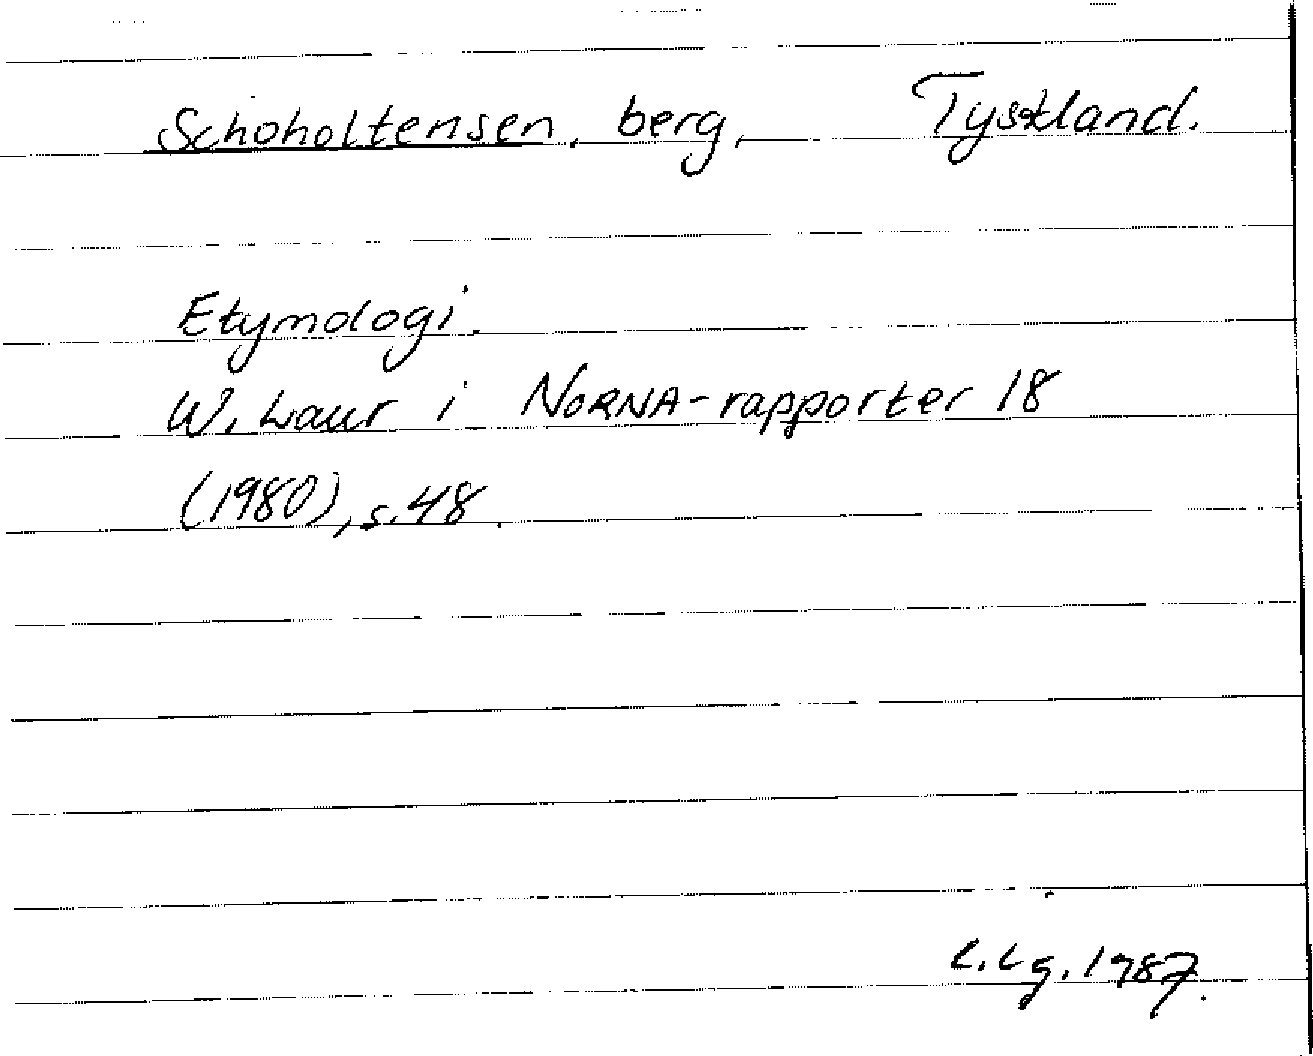 Schoholtensen, berg, Tyskland.
Etymologi.
W. Laur i NORNA-rapporter 18
(1980), s. 48.
L. Lg. 1987.